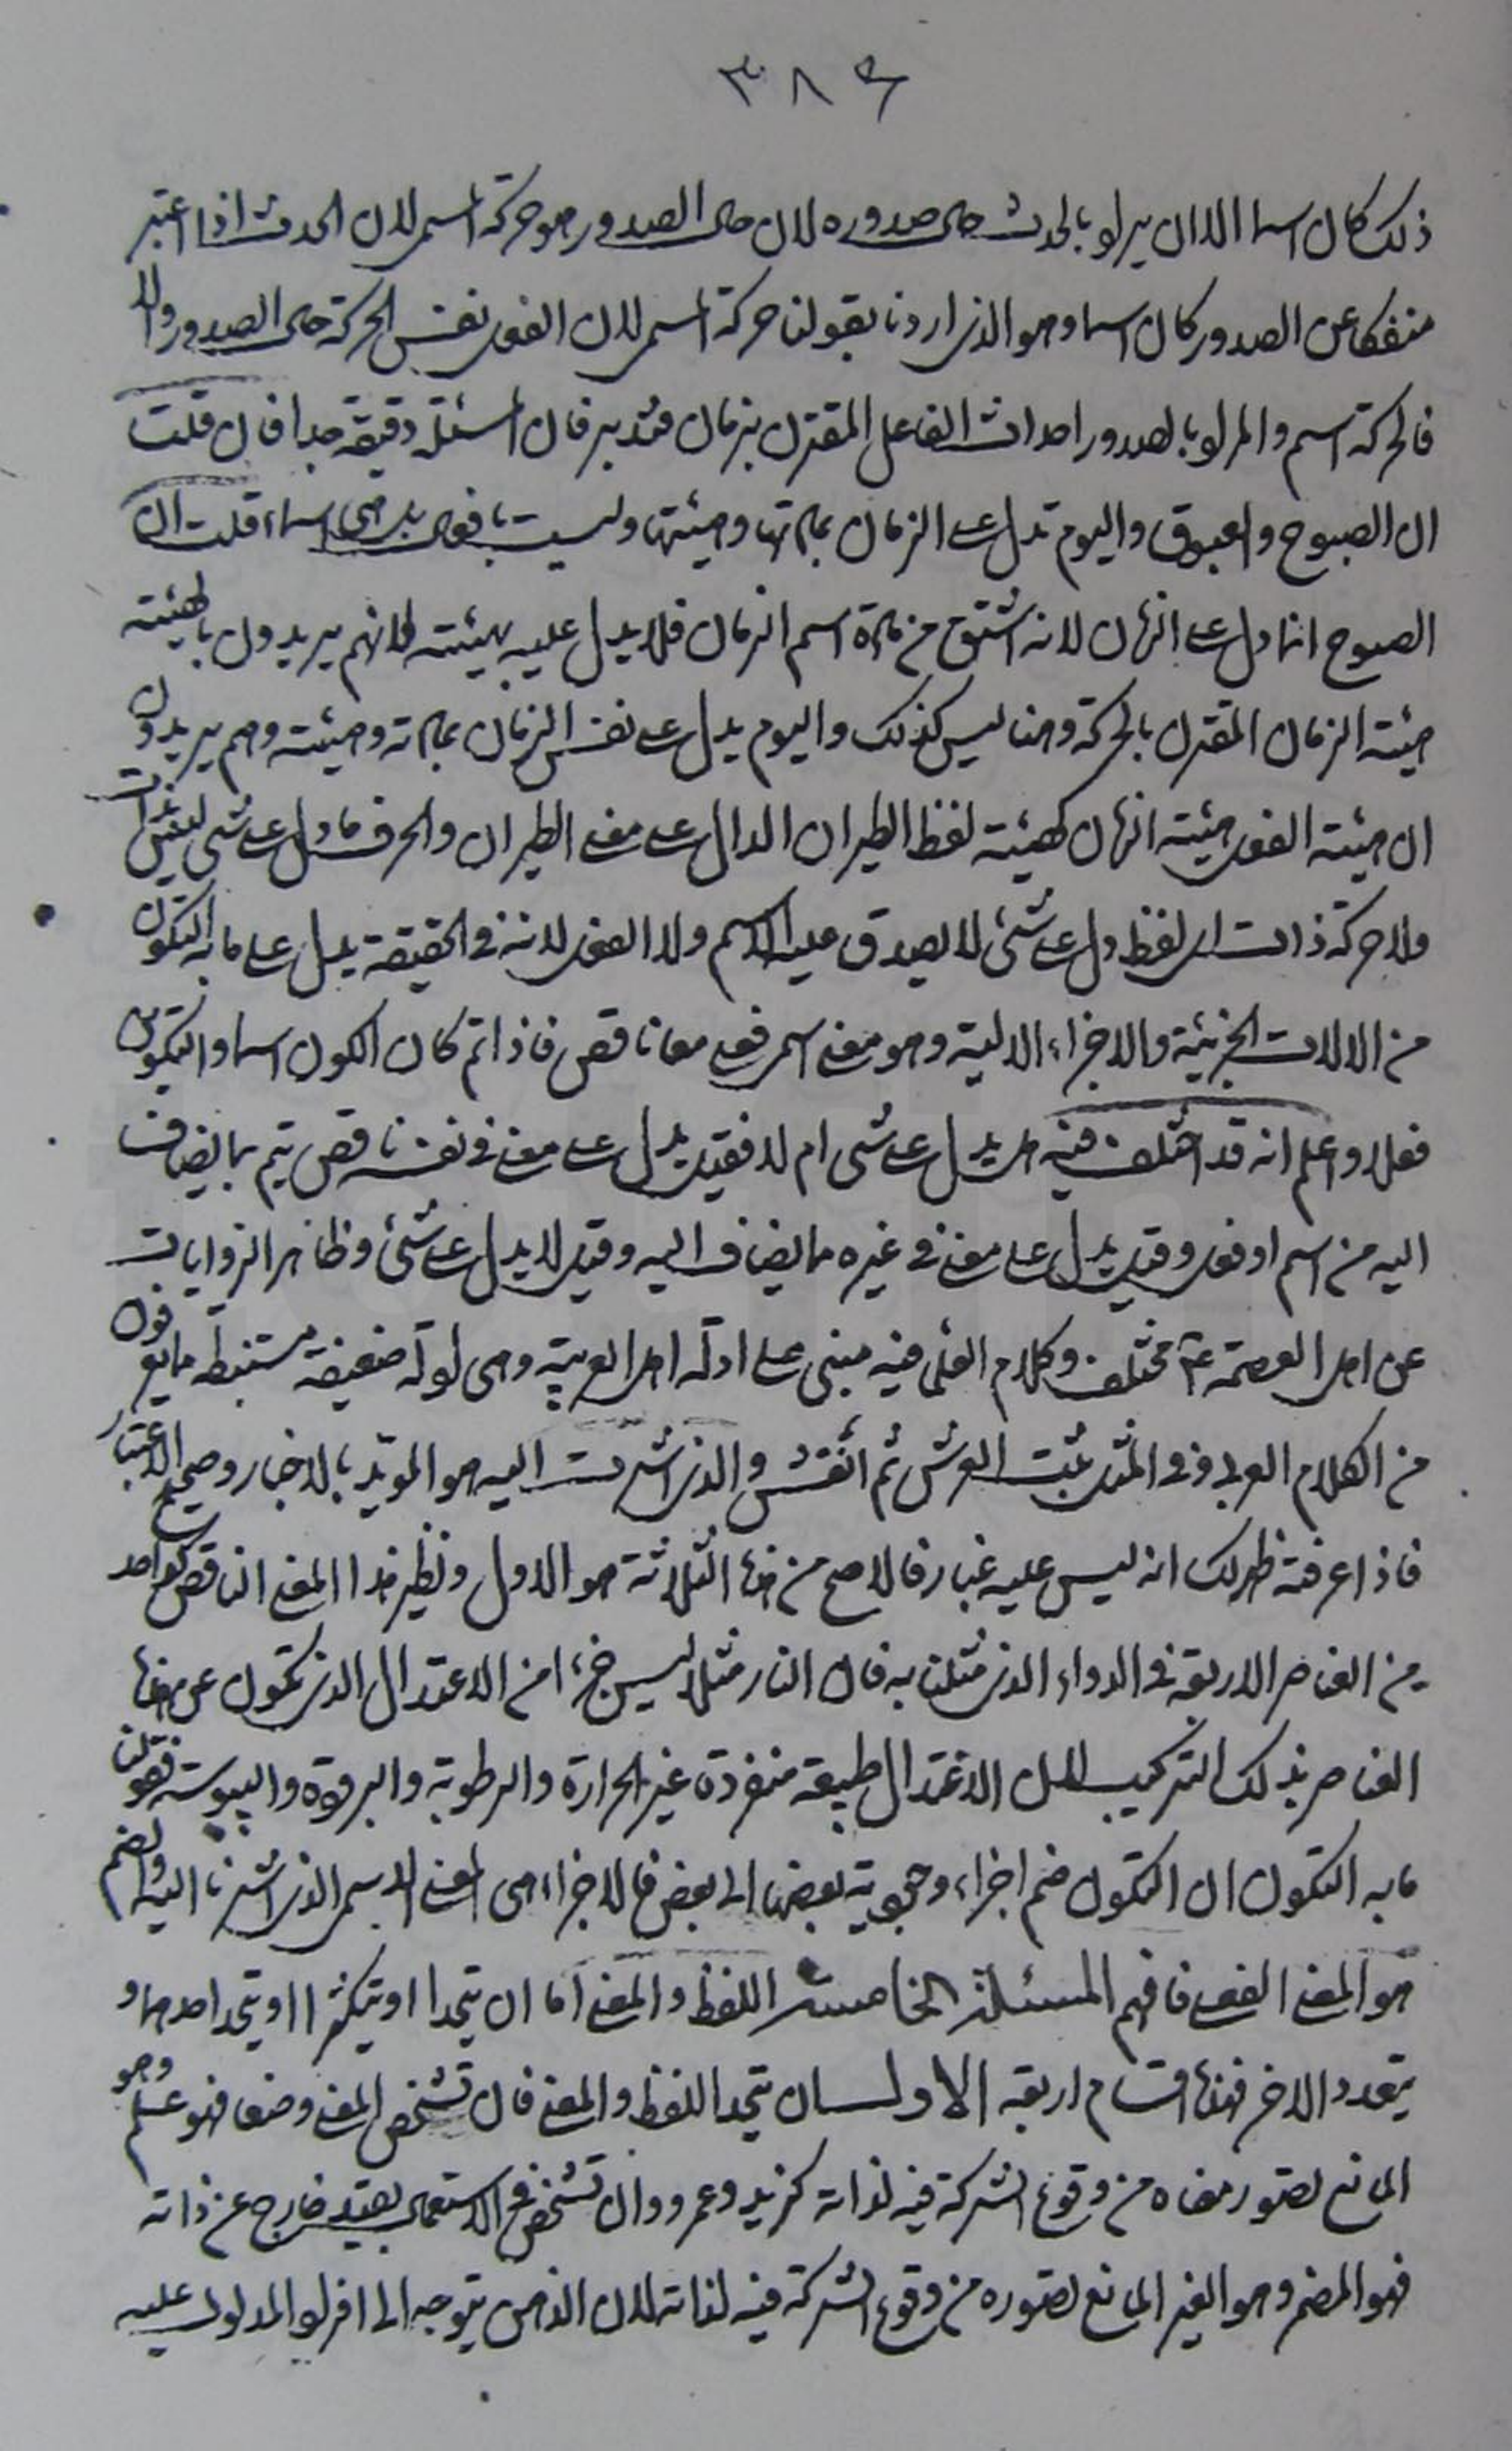 ٣٨٤
ذلك كان اسما الا ان يراد بالحدث حال صدوره لان حال الصدور هو حركة المسمى لان الحدث اذا اعتبر
منفكا عن الصدور كان اسما وهو الذي اردنا بقولنا حركة المسمى لان الفعل نفس الحركة حال الصدور والا
فالحركة اسم والمراد بالصدور احداث الفاعل المقترن بزمان فتدبر فان المسئلة دقيقة جدا فان قلت
ان الصبوح والغبوق واليوم تدل على الزمان بمادتها وهيئتها وليست بافعال بل هي اسماء قلت ان
الصبوح انما دل على الزمان لانه اشتق من مادة اسم الزمان فلا يدل عليه بهيئته لانهم يريدون بالهيئة
هيئة الزمان المقترن بالحركة وهنا ليس كذلك واليوم يدل على نفس الزمان بمادته وهيئته وهم يريدون
ان هيئة الفعل هيئة الزمان كهيئة لفظ الطيران الدال على معنى الطيران والحرف ما دل على شئ ليس ذات
ولا حركة ذات اي لفظ دل على شئ لا يصدق عليه الاسم ولا الفعل لانه في الحقيقة يدل على ما به التكون
من الالات الجزئية والاجزاء الالية وهو معنى اسمي فعلي معا ناقص فاذا تم كان الكون اسما والتكون
فعلا واعلم انه قد اختلف فيه هل يدل على شئ ام لا فقيل يدل على معنى في نفسه ناقص يتم بما يضاف
اليه من اسم او فعل وقيل يدل على معنى في غيره مما يضاف اليه وقيل لا يدل على شئ وظاهر الروايات
عن اهل العصمة ع مختلف وكلام العلماء فيه مبني على ادلة اهل العربية وهي ادلة ضعيفة مستنبطة مما يعرفون
من الكلام العربي وفي المثل ثبت العرش ثم انقش والذي اشرت اليه هو المؤيد بالاخبار وصحيح الاعتبار
فاذا عرفته ظهر لك انه ليس عليه غبار فالاصح من هذه الثلاثة هو الاول ونظير هذا المعنى الناقص كواحد
من العناصر الاربعة في الدواء الذي مثلنا به فان النار مثلا ليس جزءا من الاعتدال الذي تكون عن هذه
العناصر بذلك التركيب لان الاعتدال طبيعة منفردة غير الحرارة والرطوبة والبرودة واليبوسة فقولنا
ما به التكون ان التكون ضم اجزاء بعضها الى بعض فالاجزاء هي المعنى الاسمي الذي اشرنا اليه والضم
هو المعنى الفعلي فافهم المسئلة الخامسة اللفظ والمعنى اما ان يتحدا او يتكثرا او يتحد احدهما و
يتعدد الاخر فهذه اقسام اربعة الاول ان يتحد اللفظ والمعنى فان تشخص المعنى وضعا فهو علم وهو
المانع تصور معناه من وقوع الشركة فيه لذاته كزيد وعمرو وان تشخص في الاستعمال بقيد خارج عن ذاته
فهو المضمر وهو الغير المانع تصوره من وقوع الشركة فيه لذاته لان الذهن يتوجه الى افراد المدلول عليه